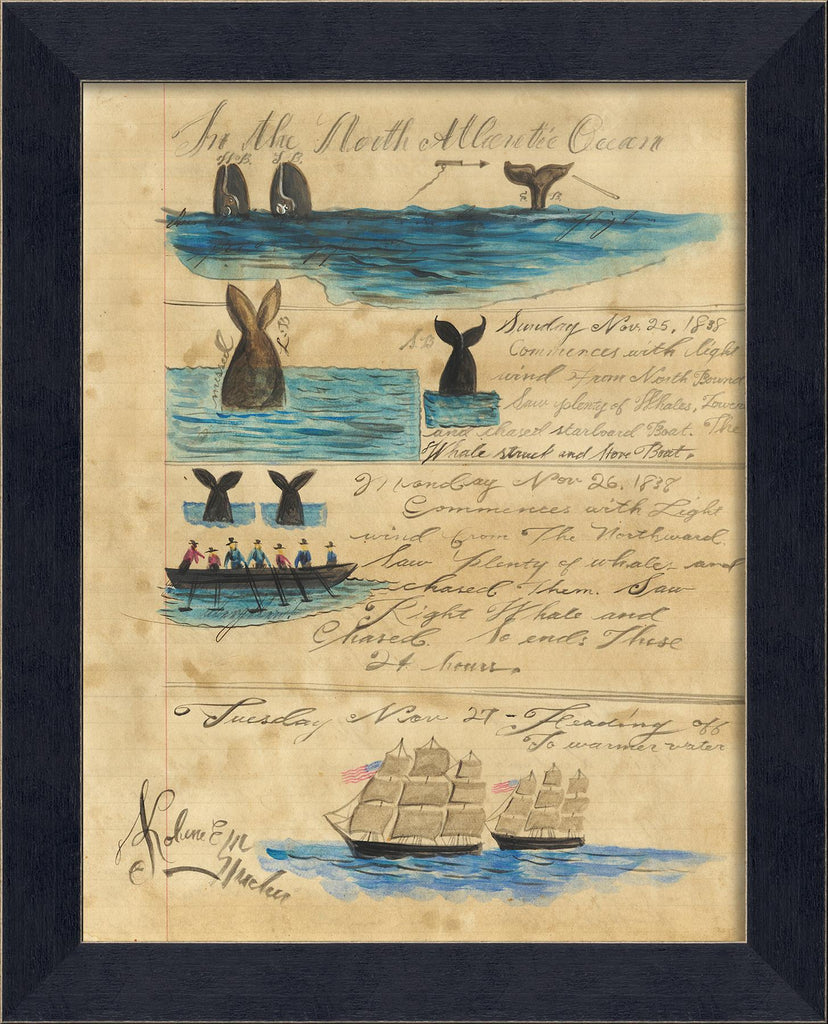 In the North Atlantic Ocean
S.B.
missed
L.B
S.B
Sunday Nov. 25, 1838
Commences with light
wind from North Bound
Saw plenty of Whales, Lower
and chased starboard Boat. The
Whale struck and stove Boat.
Monday Nov 26, 1838
Commences with Light
wind from The Northward.
Saw Plenty of whales and
chased Them. Saw
Right Whale and
Chased. So ends These
24 hours.
Tuesday Nov 27 - Heading off
To warmer water